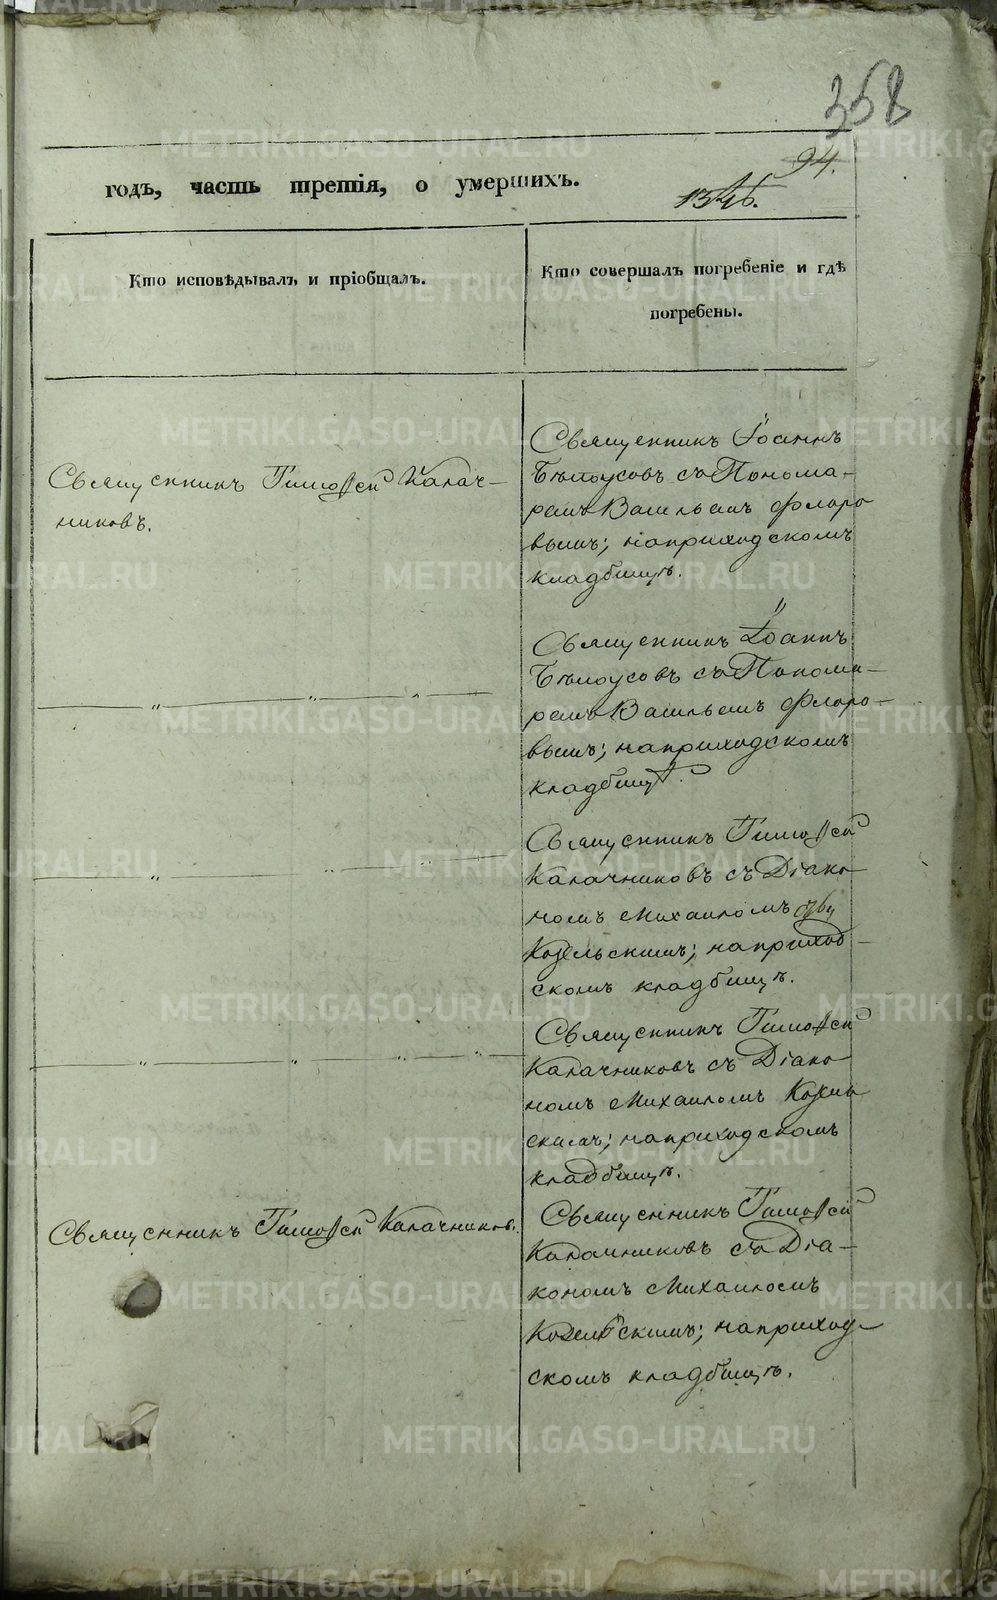 358
94.
годъ, часть третія, о умершихъ.
Кто исповѣдывалъ и пріобщалъ.
Кто совершалъ погребеніе и гдѣ
погребены.
Священникъ Тимоѳей Калач-
никовъ.
Священникъ Іоаннъ
Бѣлоусовъ съ Понома-
ремъ Васильемъ Флоро
вымъ; на приходскомъ
кладбищѣ.
Священникъ Іоаннъ
Бѣлоусовъ съ Понома-
ремъ Васильемъ Флоро-
вымъ; на приходскомъ
кладбищѣ.
Священникъ Тимоѳей
Калачниковъ съ Діако
номъ Михаиломъ
Козельскимъ; на приход-
скомъ кладбищѣ.
Священникъ Тимоѳей
Калачниковъ съ Діако
номъ Михаиломъ Козель
скимъ; на приходскомъ
кладбищѣ.
Священникъ Тимоѳей Калачниковъ.
Священникъ Тимоѳей
Калачниковъ съ Діа-
кономъ Михаиломъ
Козельскимъ; на приход-
скомъ кладбищѣ.
METRIKI.GASO-URAL.RU